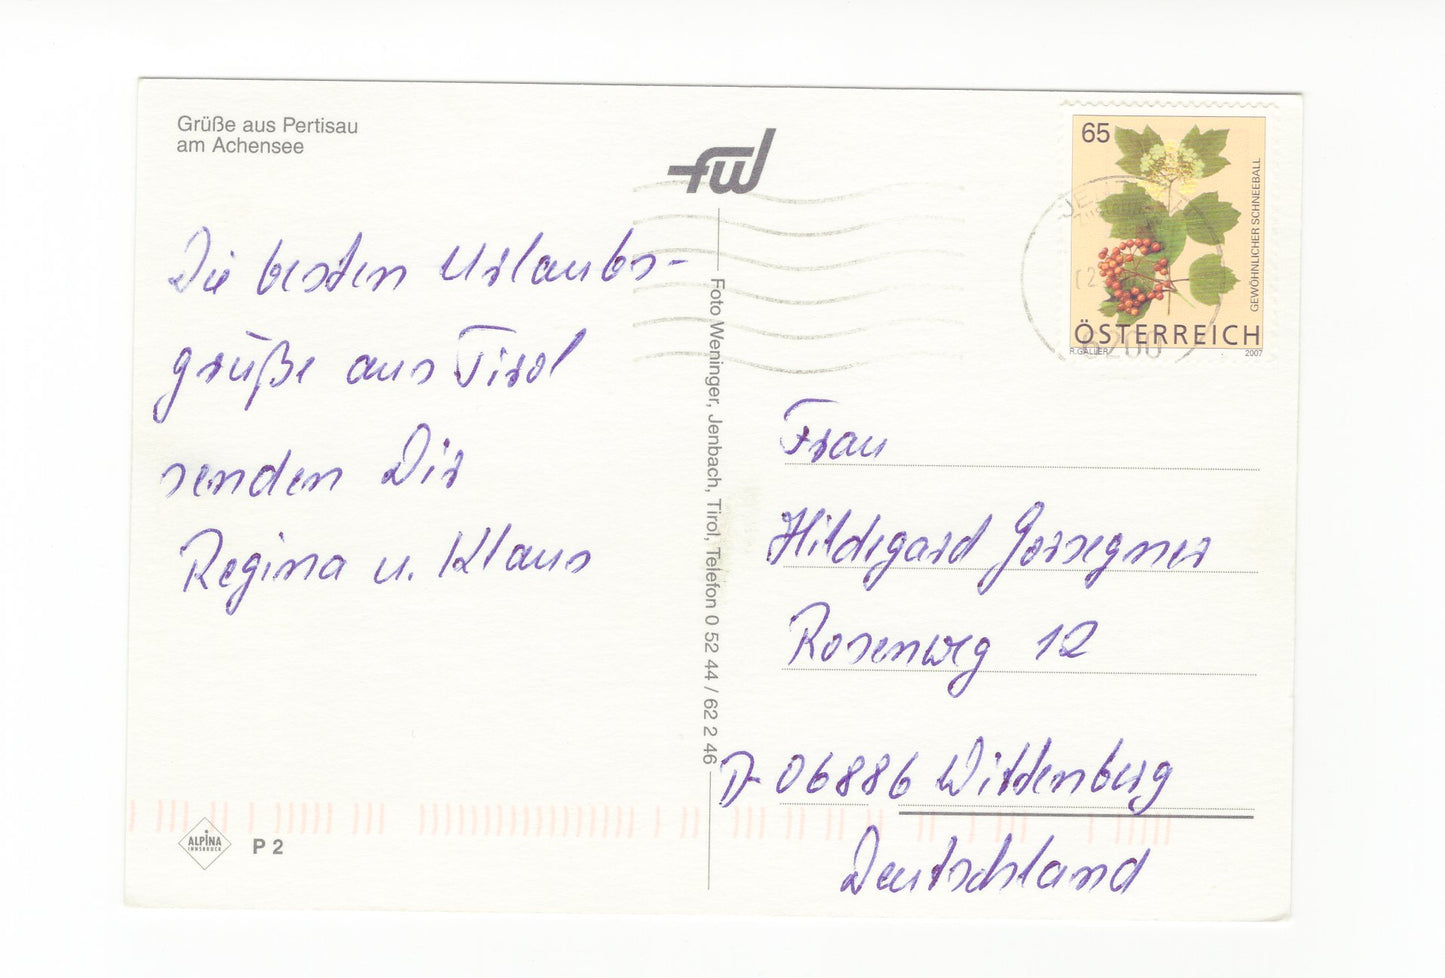 Grüße aus Pertisau
am Achensee
fw
Die besten Urlaubs-
grüße aus Tirol
senden Dir
Regina u. Klaus
ALPINA
INNSBRUCK
P 2
Foto Weninger, Jenbach, Tirol, Telefon 0 52 44 / 62 2 46
65
GEWÖHNLICHER SCHNEEBALL
ÖSTERREICH
R.GALLER 2007
6200
Frau
Hildegard Gorsegner
Rosenweg 12
D-06886 Wittenberg
Deutschland